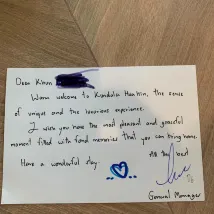 Dear Khun
Warm welcome to Kandola Huahin, the sense
of unique and the luxurious experience.
I wish you have the most pleasant and graceful
moment filled with fond memories that you can bring home.
Have a wonderful stay.
All the best
General Manager